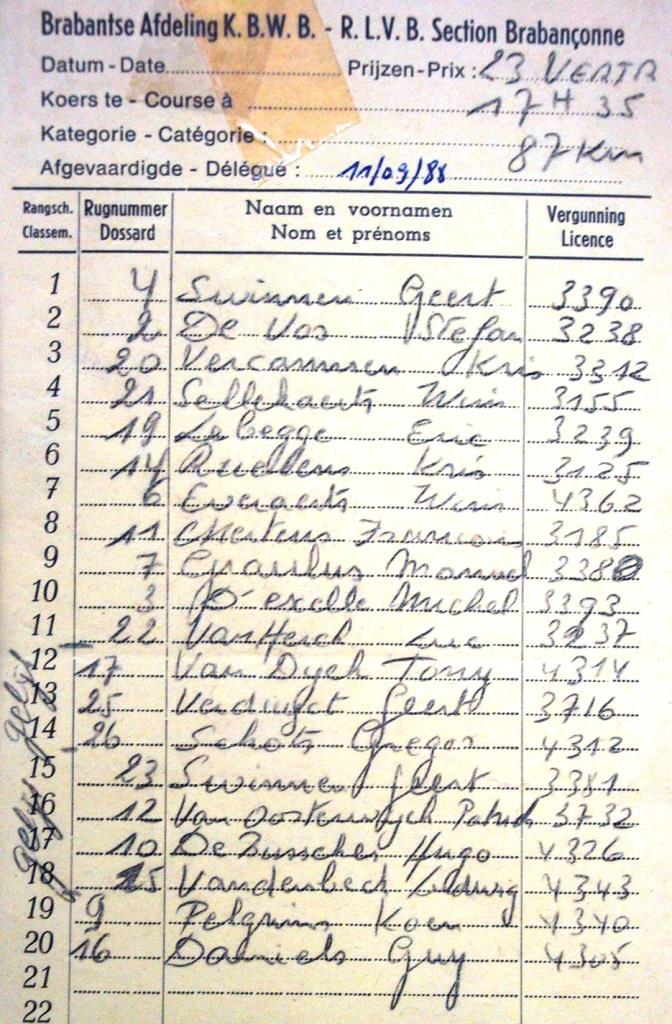 Brabantse Afdeling K. B. W. B. - R. L. V. B. Section Brabançonne
Datum - Date Prijzen - Prix : 23 VERTR
Koers te - Course à 17 H 35
Kategorie - Catégorie : 87 Km
Afgevaardigde - Délégué : 11/09/88
Rangsch. Rugnummer Naam en voornamen Vergunning
Classem. Dossard Nom et prénoms Licence
1 4 Swinnen Geert 3390
2 2 De Vos Stefan 3238
3 20 Vercammen Kris 3312
4 21 Sellekaerts Wim 3155
5 19 Lebegge Eric 3239
6 14 Ruellens Kris 3125
7 6 Everaerts Wim 4362
8 11 Mertens Francois 3185
9 7 Graulus Manuel 3380
10 3 Michel 3393
11 22 Van Herck Luc 3237
12 17 Van Dyck Tony 4314
13 25 Geert 3716
14 26 Schots Gregor 4312
15 23 Swinnen Geert 3381
16 12 Van Oosterwyck Patrick 3732
17 10 De Busscher Hugo 4326
18 15 Vandenbeck Ludwig 4343
19 9 Pelgrims Koen 4340
20 16 Daniels Guy 4305
21
22
gelijk
gelijk